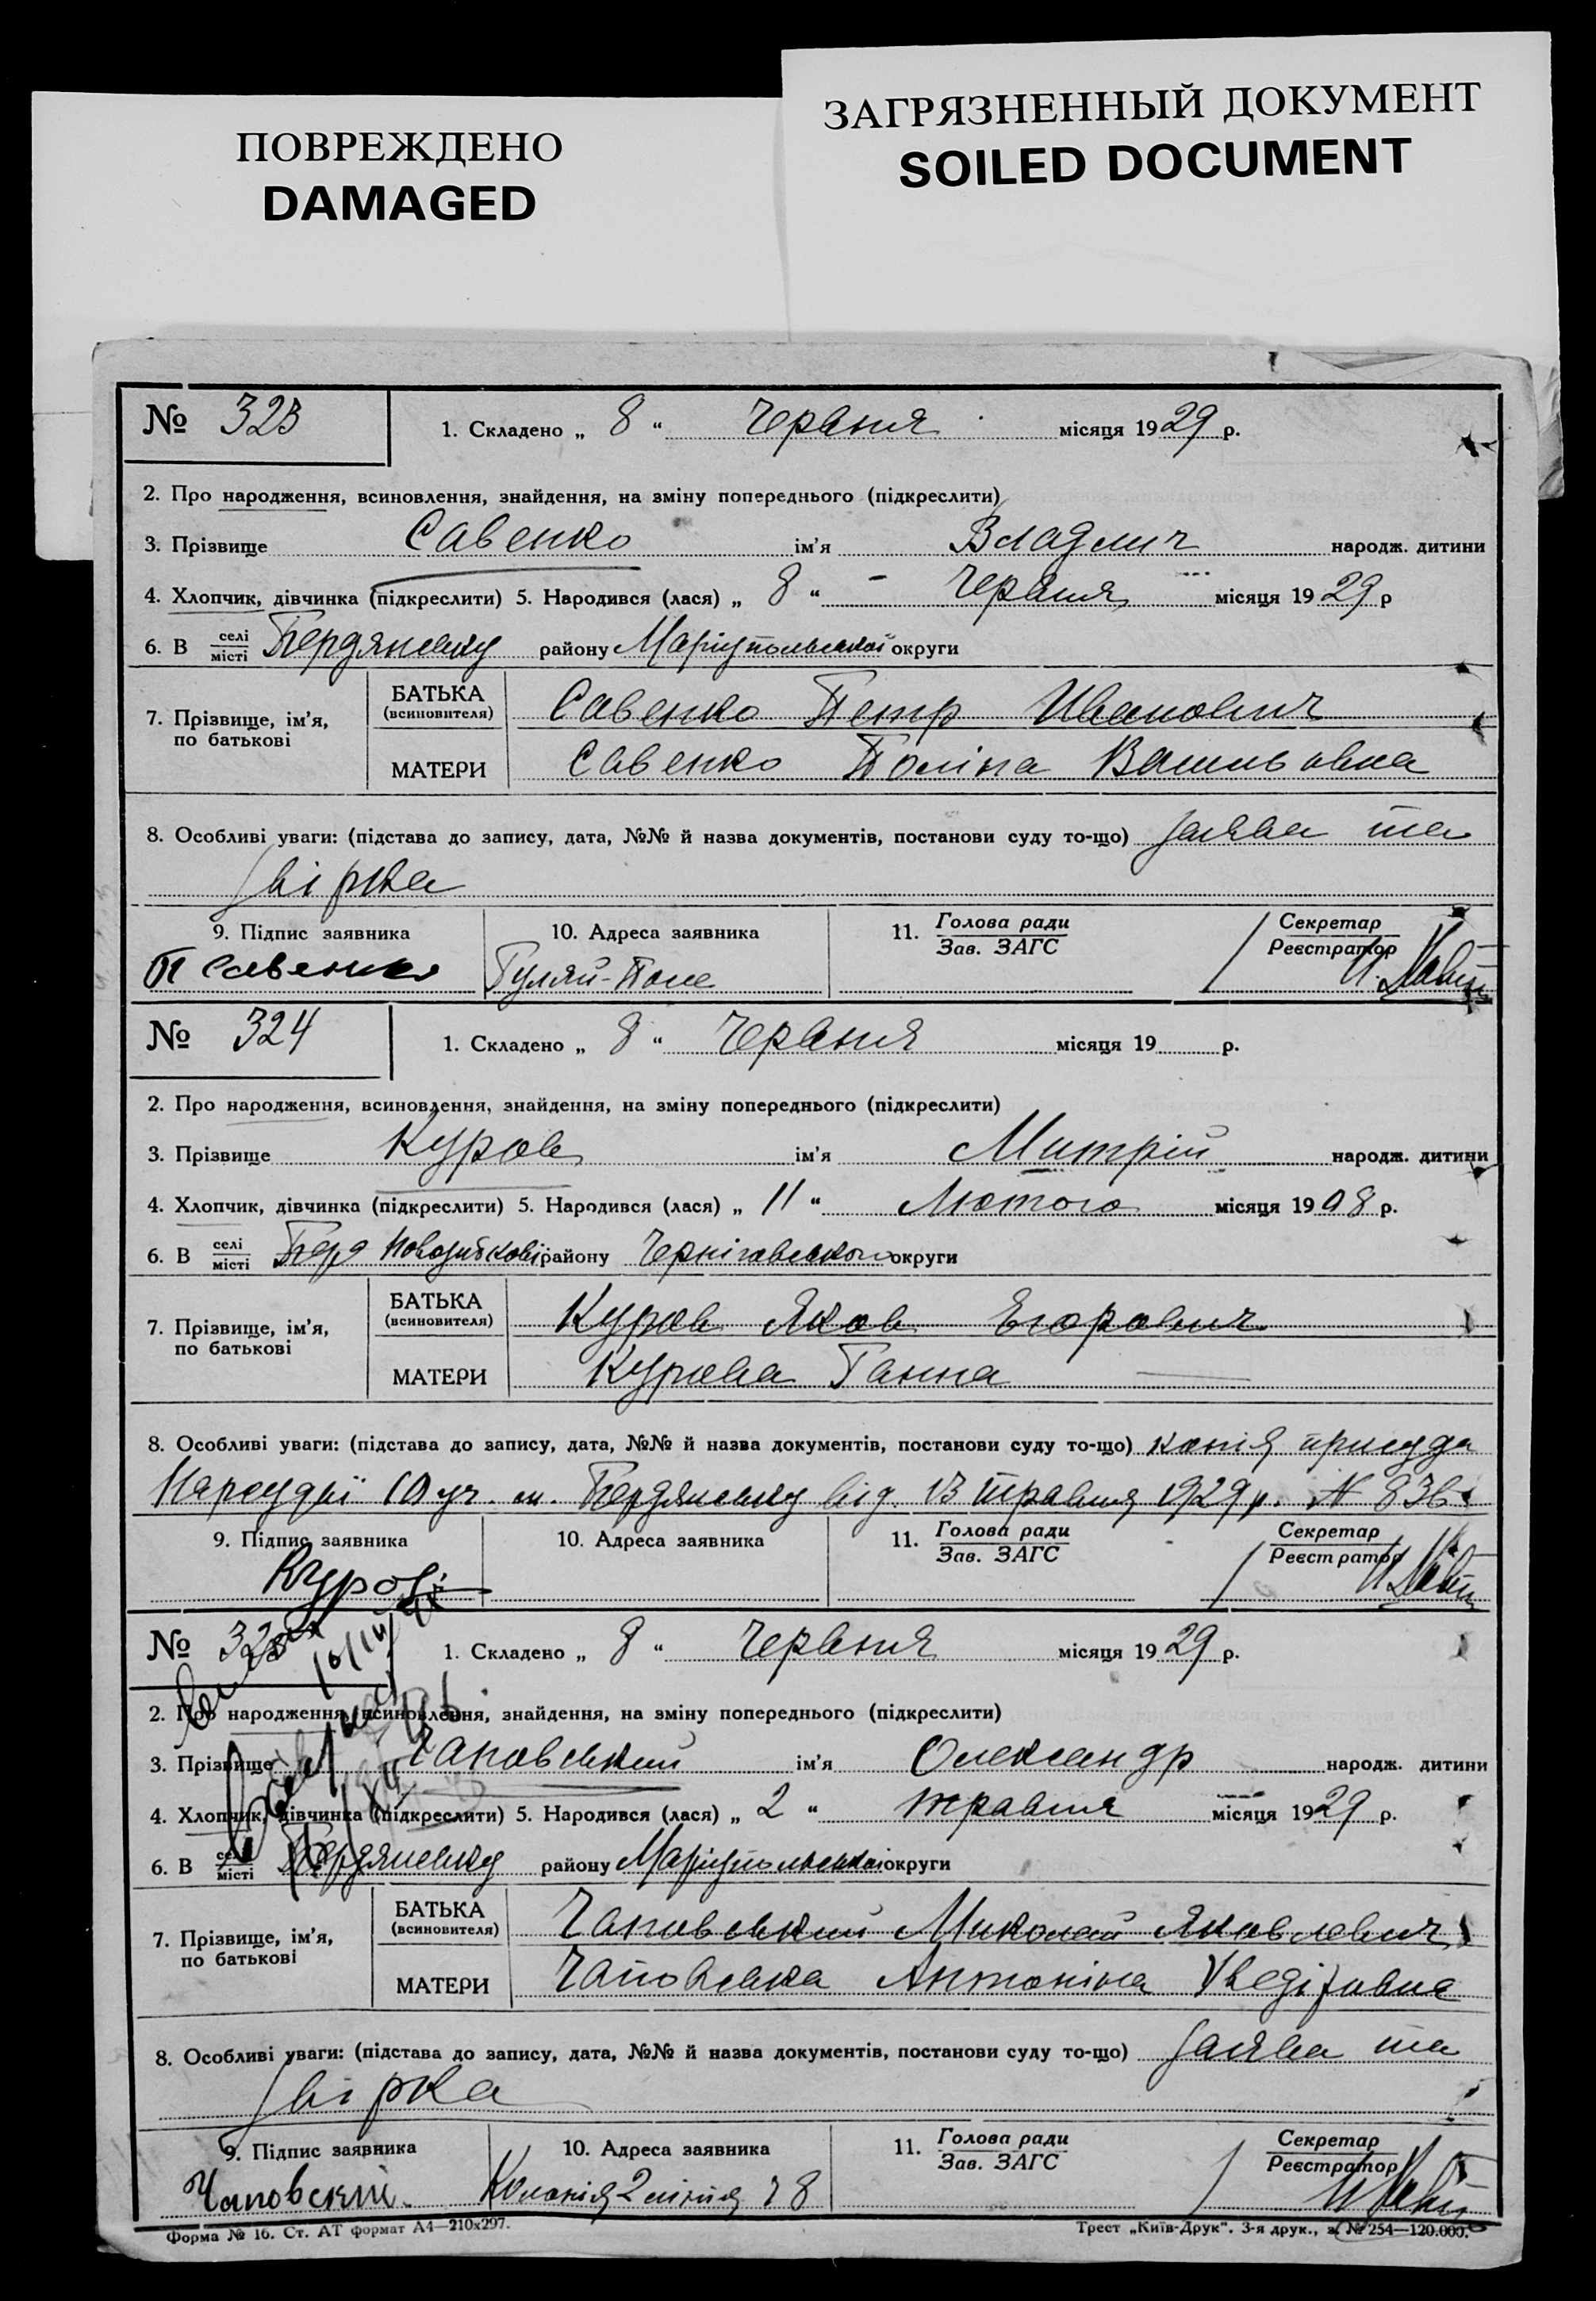 ПОВРЕЖДЕНО
DAMAGED
ЗАГРЯЗНЕННЫЙ ДОКУМЕНТ
SOILED DOCUMENT
№ 323 1. Складено „ 8 “ Червня місяця 1929 р.
2. Про народження, всиновлення, знайдення, на зміну попереднього (підкреслити)
3. Прізвище Савенко ім’я народж. дитини
4. Хлопчик, дівчинка (підкреслити) 5. Народився (лася) „ 8 “ Червня місяця 1929 р
6. В селі місті Бердянську району Маріупольської округи
7. Прізвище, ім’я, по батькові
БАТЬКА (всиновителя) Савенко Петр Иванович
МАТЕРИ Савенко Поліна
8. Особливі уваги: (підстава до запису, дата, №№ й назва документів, постанови суду то-що) заява та
звірка
9. Підпис заявника 10. Адреса заявника 11. Голова ради Зав. ЗАГС Секретар Реєстратор
П Савенко Гуляй-Поле
№ 324 1. Складено „ 8 “ Червня місяця 19 р.
2. Про народження, всиновлення, знайдення, на зміну попереднього (підкреслити)
3. Прізвище Куров ім’я Митрій народж. дитини
4. Хлопчик, дівчинка (підкреслити) 5. Народився (лася) „ 11 “ Лютого місяця 1908 р.
6. В селі місті району Чернігавського округи
7. Прізвище, ім’я, по батькові
БАТЬКА (всиновителя) Куров Яков Егорович
МАТЕРИ Курова Ганна
8. Особливі уваги: (підстава до запису, дата, №№ й назва документів, постанови суду то-що) копія присуда
Нарсудді 10 уч. м. Бердянську від 13 травня 1929 р. №
9. Підпис заявника 10. Адреса заявника 11. Голова ради Зав. ЗАГС Секретар Реєстратор
№ 325 1. Складено „ 8 “ Червня місяця 1929 р.
2. Про народження, всиновлення, знайдення, на зміну попереднього (підкреслити)
3. Прізвище Чаповський ім’я Олександр народж. дитини
4. Хлопчик, дівчинка (підкреслити) 5. Народився (лася) „ 2 “ травня місяця 1929 р.
6. В селі місті Бердянську району Маріупольської округи
7. Прізвище, ім’я, по батькові
БАТЬКА (всиновителя) Чаповський Миколай Яковлевич
МАТЕРИ Чаповська Антоніна
8. Особливі уваги: (підстава до запису, дата, №№ й назва документів, постанови суду то-що) заява та
звірка
9. Підпис заявника 10. Адреса заявника 11. Голова ради Зав. ЗАГС Секретар Реєстратор
Чаповский Колонія 2 лінія 8
Форма № 16. Ст. АТ формат А4—210х297. Трест „Київ-Друк“. 3-я друк., з. № 254—120.000.